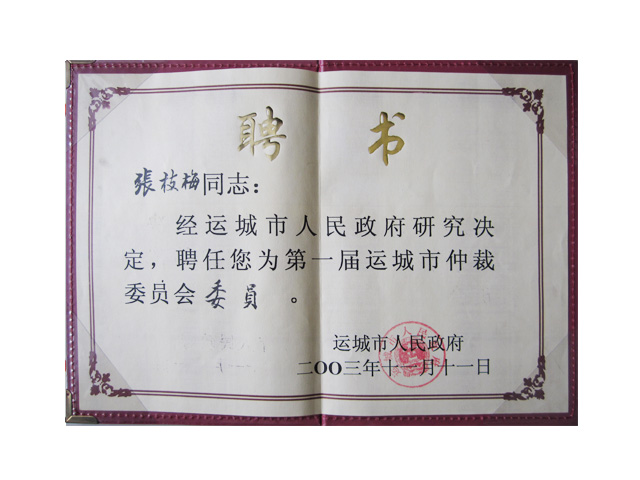 聘书
張枝梅同志：
经运城市人民政府研究决
定，聘任您为第一届运城市仲裁
委员会委员。
运城市人民政府
二OO三年十一月十一日